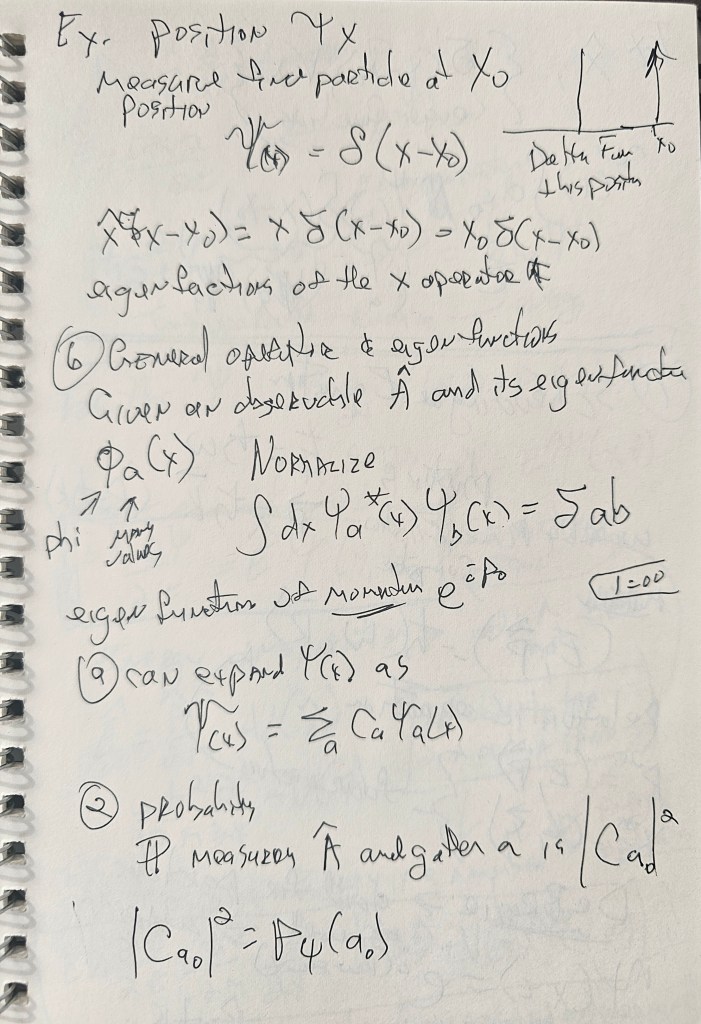 Ex. position Ψx
measure find particle at x₀
position
Ψ(x) = δ(x-x₀)
Delta Fun x₀
this positn
x̂ δ(x-x₀) = x δ(x-x₀) = x₀ δ(x-x₀)
eigenfuctions of the x operator
⑥ General operator & eigenfunctions
Given an observable Â and its eigenfunctn
ϕa(x) Normalize
phi many values
∫dx Ψa*(x) Ψb(x) = δab
eigenfunction of momentum e^{ip₀} 1=00
ⓐ can expand Ψ(x) as
Ψ(x) = Σa Ca Ψa(x)
② probability
measuring Â and a is |Ca₀|²
|Ca₀|² = PΨ(a₀)